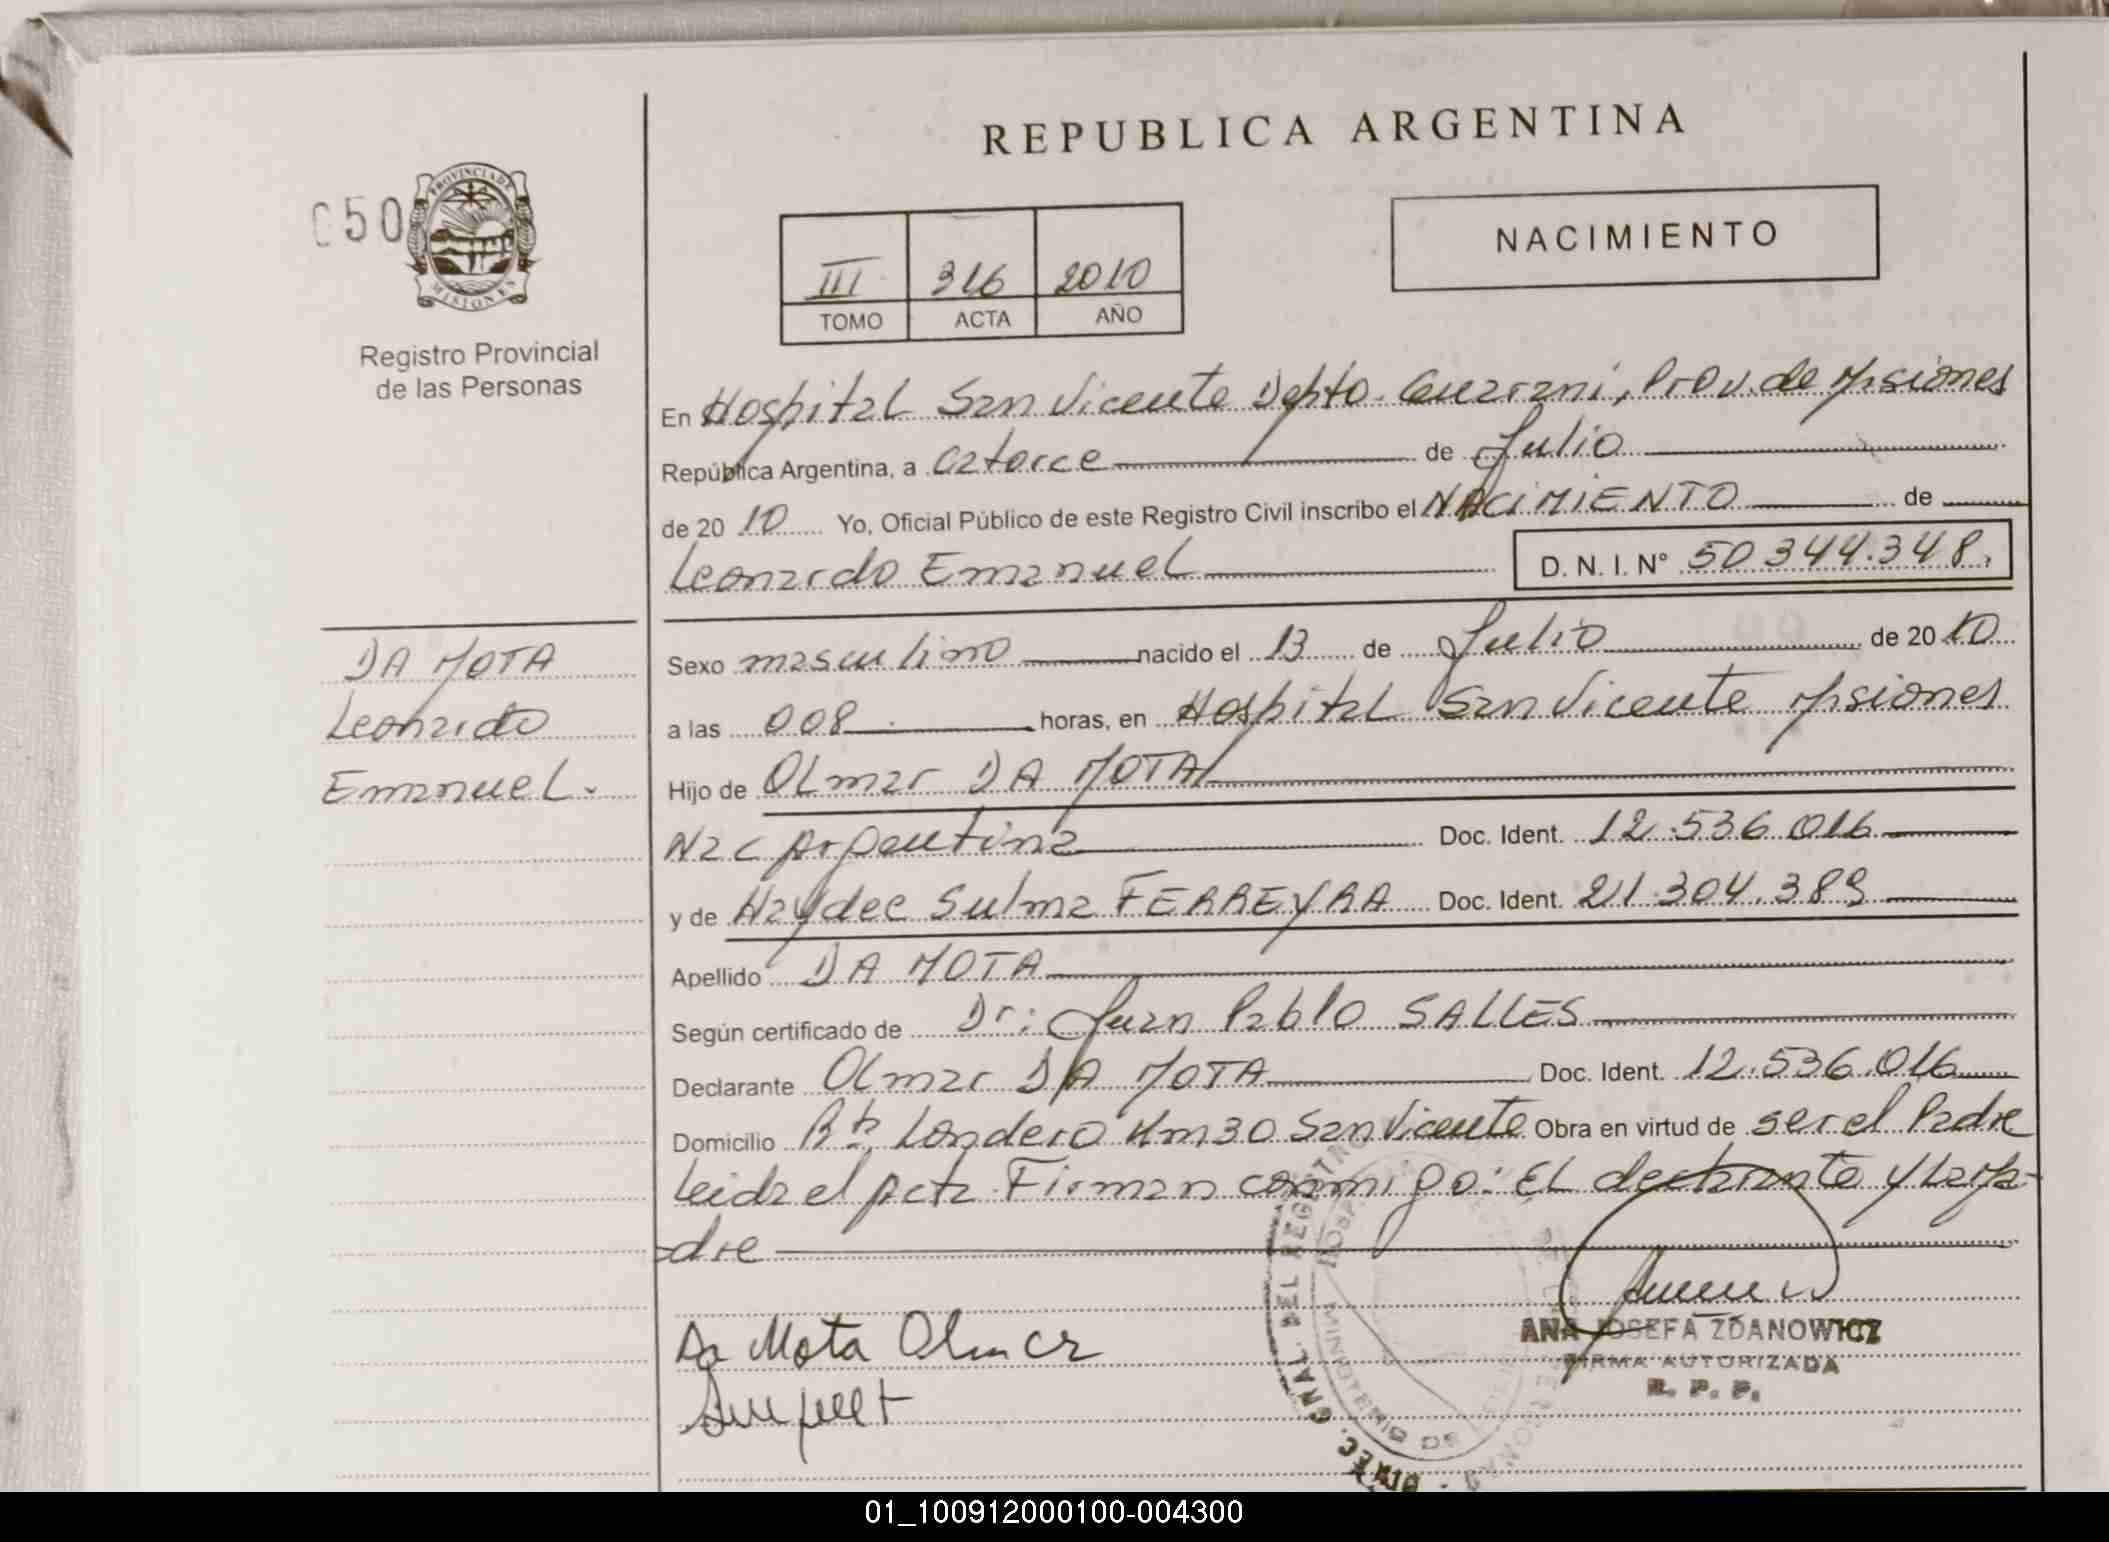 REPUBLICA ARGENTINA
050
PROVINCIA DE
MISIONES
Registro Provincial
de las Personas
III 316 2010
TOMO ACTA AÑO
NACIMIENTO
En Hospital San Vicente Dpto. Guarani, Prov. de Misiones
República Argentina, a catorce de Julio
de 20 10 Yo, Oficial Público de este Registro Civil inscribo el NACIMIENTO de
Leonardo Emanuel D. N. I. N° 50.344.348.
DA MOTA
Leonardo
Emanuel.
Sexo masculino nacido el 13 de Julio de 20 10
a las 008 horas, en Hospital San Vicente Misiones
Hijo de Olmar DA MOTA
Nac Argentina Doc. Ident. 12.536.016
y de Haydee Sulma FERREYRA Doc. Ident. 21.304.389
Apellido DA MOTA
Según certificado de Dr: Juan Pablo SALLES
Declarante Olmar DA MOTA Doc. Ident. 12.536.016
Domicilio Rta Londero Km30 San Vicente Obra en virtud de ser el Padre
Leida el Acta Firman conmigo: EL declarante y La Ma-
dre
Da Mota Olmar
ANA JOSEFA ZDANOWICZ
FIRMA AUTORIZADA
R. P. P.
DIREC. GNAL. DEL REGISTRO
MINISTERIO DE
01_100912000100-004300